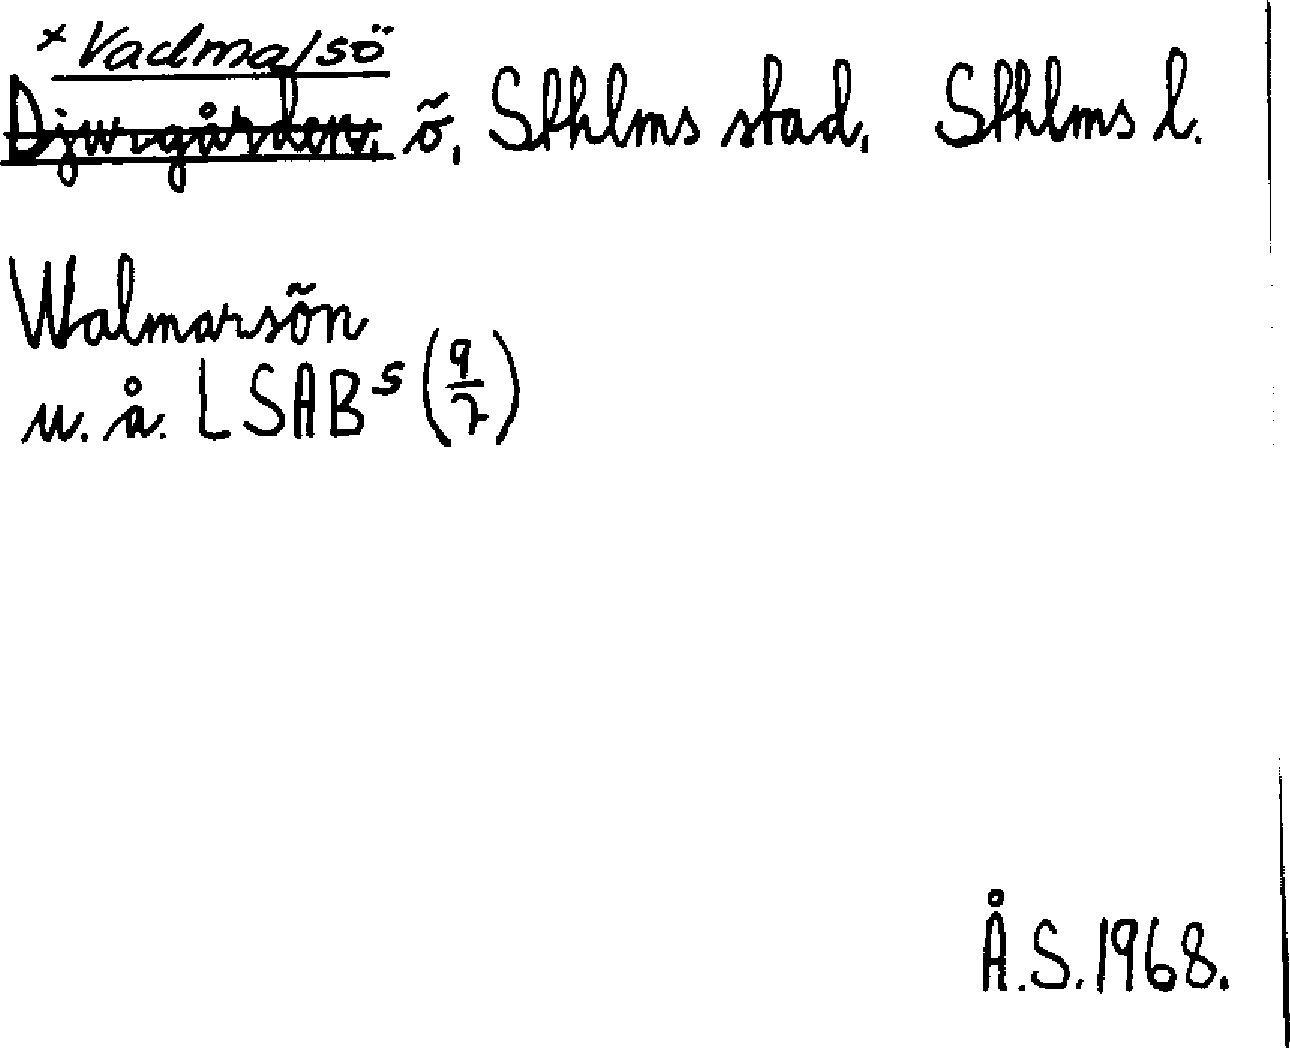 + Vadmalsö
Djurgården, ö, Sthlms stad, Sthlms l.
Walmarsön
u. å. LSAB s (9/7)
Å.S. 1968.